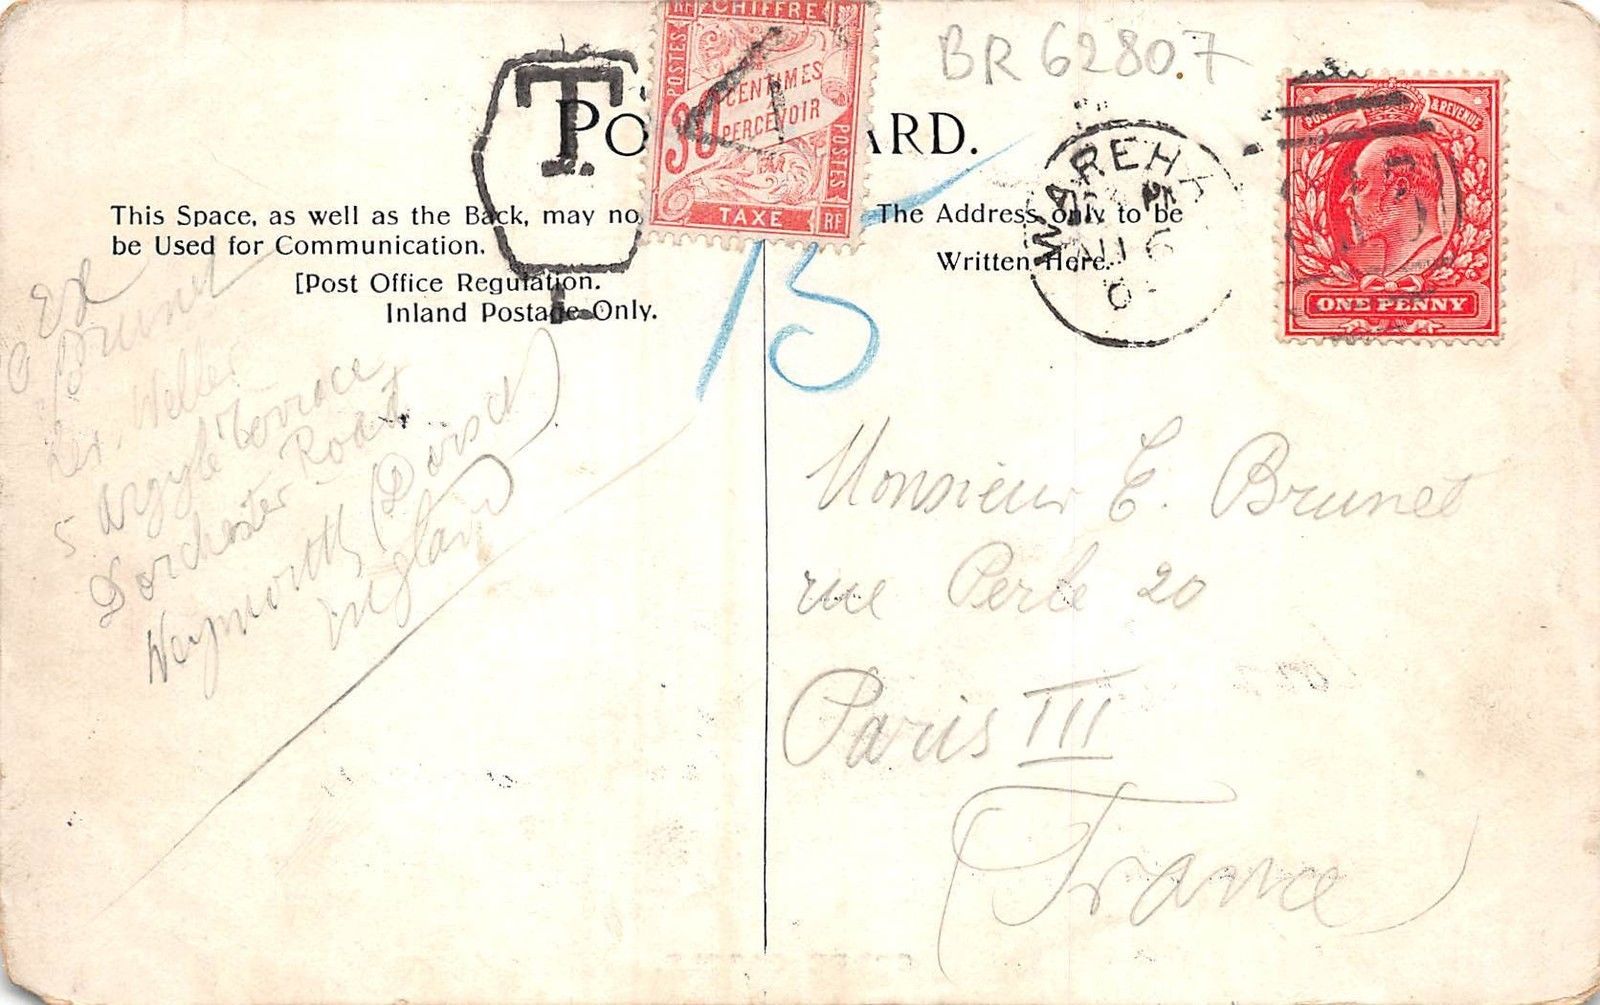 BR 62807
RF CHIFFRE
POSTES
30 CENTIMES
A
PERCEVOIR
POSTES
TAXE RF
T
L
ARD.
POSTAGE & REVENUE
ONE PENNY
WAREHA
This Space, as well as the Back, may no
be Used for Communication.
[Post Office Regulation.
Inland Postage Only.
The Address only to be
Written Here.
15
Brunet
Weller
5 Argyle terrace
Dorchester Road
Weymouth (Dorset)
England
Monsieur E. Brunet
rue Perle 20
Paris III
France